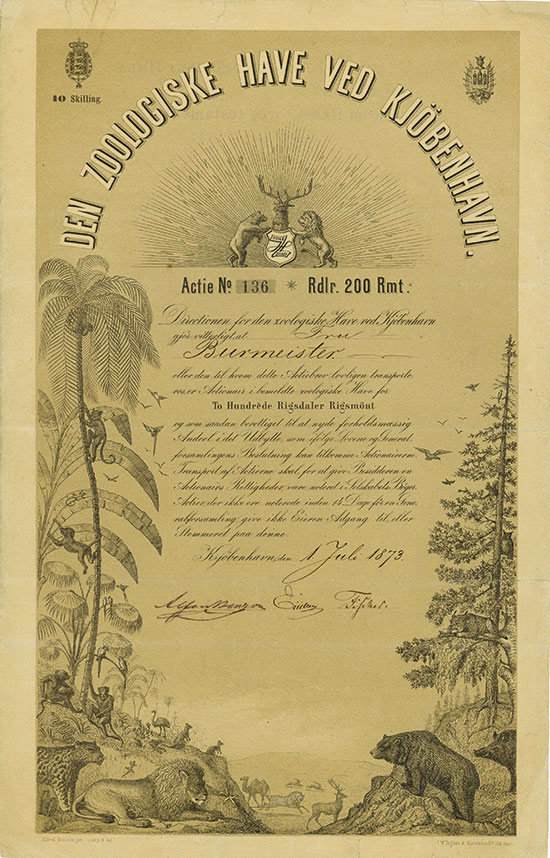 10 Skilling.
DEN ZOOLOGISKE HAVE VED KJÖBENHAVN.
Actie No 136 * Rdlr. 200 Rmt.
Directionen for den zoologiske Have ved Kjöbenhavn
gjör vitterligt, at Fru
Burmeister
eller den, til hvem dette Actiebrev lovligen transporte
res, er Actionair i bemeldte zoologiske Have for
To Hundrede Rigsdaler Rigsmönt
og som saadan berettiget til at nyde forholdsmæssig
Andeel i det Udbytte, som ifölge Lovene og General
forsamlingens Beslutning kan tilkomme Actionairerne.
Transport af Actierne skal, for at give Besidderen en
Actionairs Rettigheder, være noteret i Selskabets Bøger.
Actier, der ikke ere noterede inden 14 Dage för en Gene
ralforsamling, give ikke Eieren Adgang til, eller
Stemmeret paa denne.
Kjöbenhavn, den 1 Juli 1873.